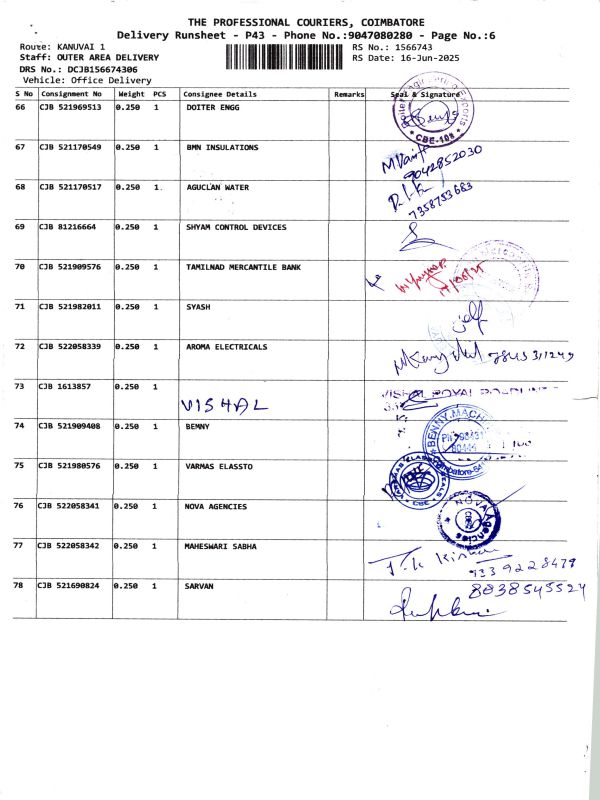 THE PROFESSIONAL COURIERS, COIMBATORE
Delivery Runsheet - P43 - Phone No.:9047080280 - Page No.:6
Route: KANUVAI 1 RS No.: 1566743
Staff: OUTER AREA DELIVERY RS Date: 16-Jun-2025
DRS No.: DCJB156674306
Vehicle: Office Delivery
S No Consignment No Weight PCS Consignee Details Remarks Seal & Signature
66 CJB 521969513 0.250 1 DOITER ENGG
CBE-108
67 CJB 521170549 0.250 1 BMN INSULATIONS
9042852030
68 CJB 521170517 0.250 1 AGUCLAN WATER
7358753683
69 CJB 81216664 0.250 1 SHYAM CONTROL DEVICES
70 CJB 521909576 0.250 1 TAMILNAD MERCANTILE BANK
71 CJB 521982011 0.250 1 SYASH
72 CJB 522058339 0.250 1 AROMA ELECTRICALS
73 CJB 1613857 0.250 1
VISHAL
74 CJB 521909408 0.250 1 BENNY
BENNY MACH
75 CJB 521980576 0.250 1 VARMAS ELASSTO
CBE
76 CJB 522058341 0.250 1 NOVA AGENCIES
NOVA Agencies
77 CJB 522058342 0.250 1 MAHESWARI SABHA
78 CJB 521690824 0.250 1 SARVAN
8038545524